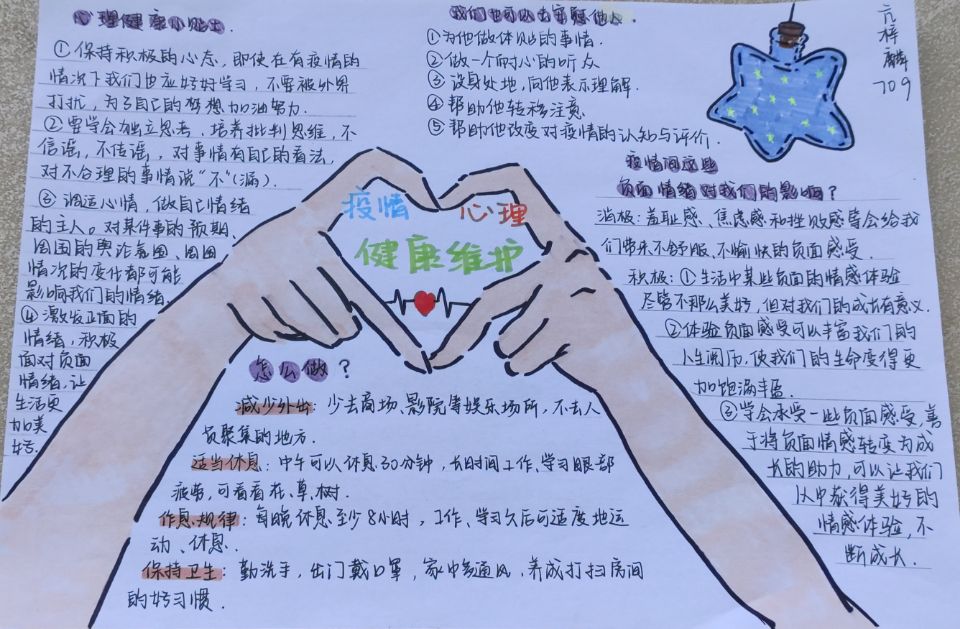 心理健康小贴士.
①保持积极的心态，即使在有疫情的
情况下我们也应好好学习，不要被外界
打扰，为了自己的梦想加油努力.
②要学会独立思考，培养批判思维，不
信谣，不传谣，对事情有自己的看法，
对不合理的事情说“不”(漏).
③调运心情，做自己情绪
的主人。对某件事的预期、
周围的舆论氛围、周围
情况的变化都可能
影响我们的情绪.
④激发正面的
情绪，积极
面对负面
情绪，让
生活更
加美
好.
我们也可以去安慰他人.
①为他做体贴的事情.
②做一个耐心的听众
③设身处地，向他表示理解.
④帮助他转移注意
⑤帮助他改变对疫情的认知与评价.
亢
梓
麟
709
疫情
心理
健康维护
疫情间产生
负面情绪对我们的影响？
消极：羞耻感、焦虑感和挫败感等会给我
们带来不舒服、不愉快的负面感受.
积极：①生活中某些负面的情感体验
尽管不那么美好，但对我们的成长有意义.
②体验负面感受可以丰富我们的
人生阅历，使我们的生命变得更
加饱满丰盈.
③学会承受一些负面感受，善
于将负面情感转变为成
长的助力，可以让我们
从中获得美好的
情感体验，不
断成长.
怎么做？
减少外出：少去商场、影院等娱乐场所，不去人
员聚集的地方.
适当休息：中午可以休息30分钟，长时间工作、学习眼部
疲劳，可看看花、草、树.
作息规律：每晚休息至少8小时，工作、学习久后可适度地运
动、休息.
保持卫生：勤洗手，出门戴口罩，家中多通风，养成打扫房间
的好习惯.